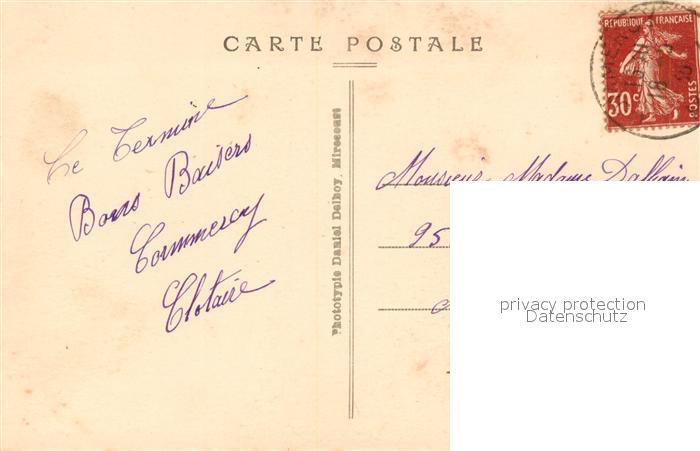 CARTE POSTALE
RÉPUBLIQUE FRANÇAISE
30c
POSTES
Le Termine
Bons Baisers
Commercy
Clotaire
Phototypie Daniel Delboy, Mirecourt
Monsieur Madame
95
privacy protection
Datenschutz